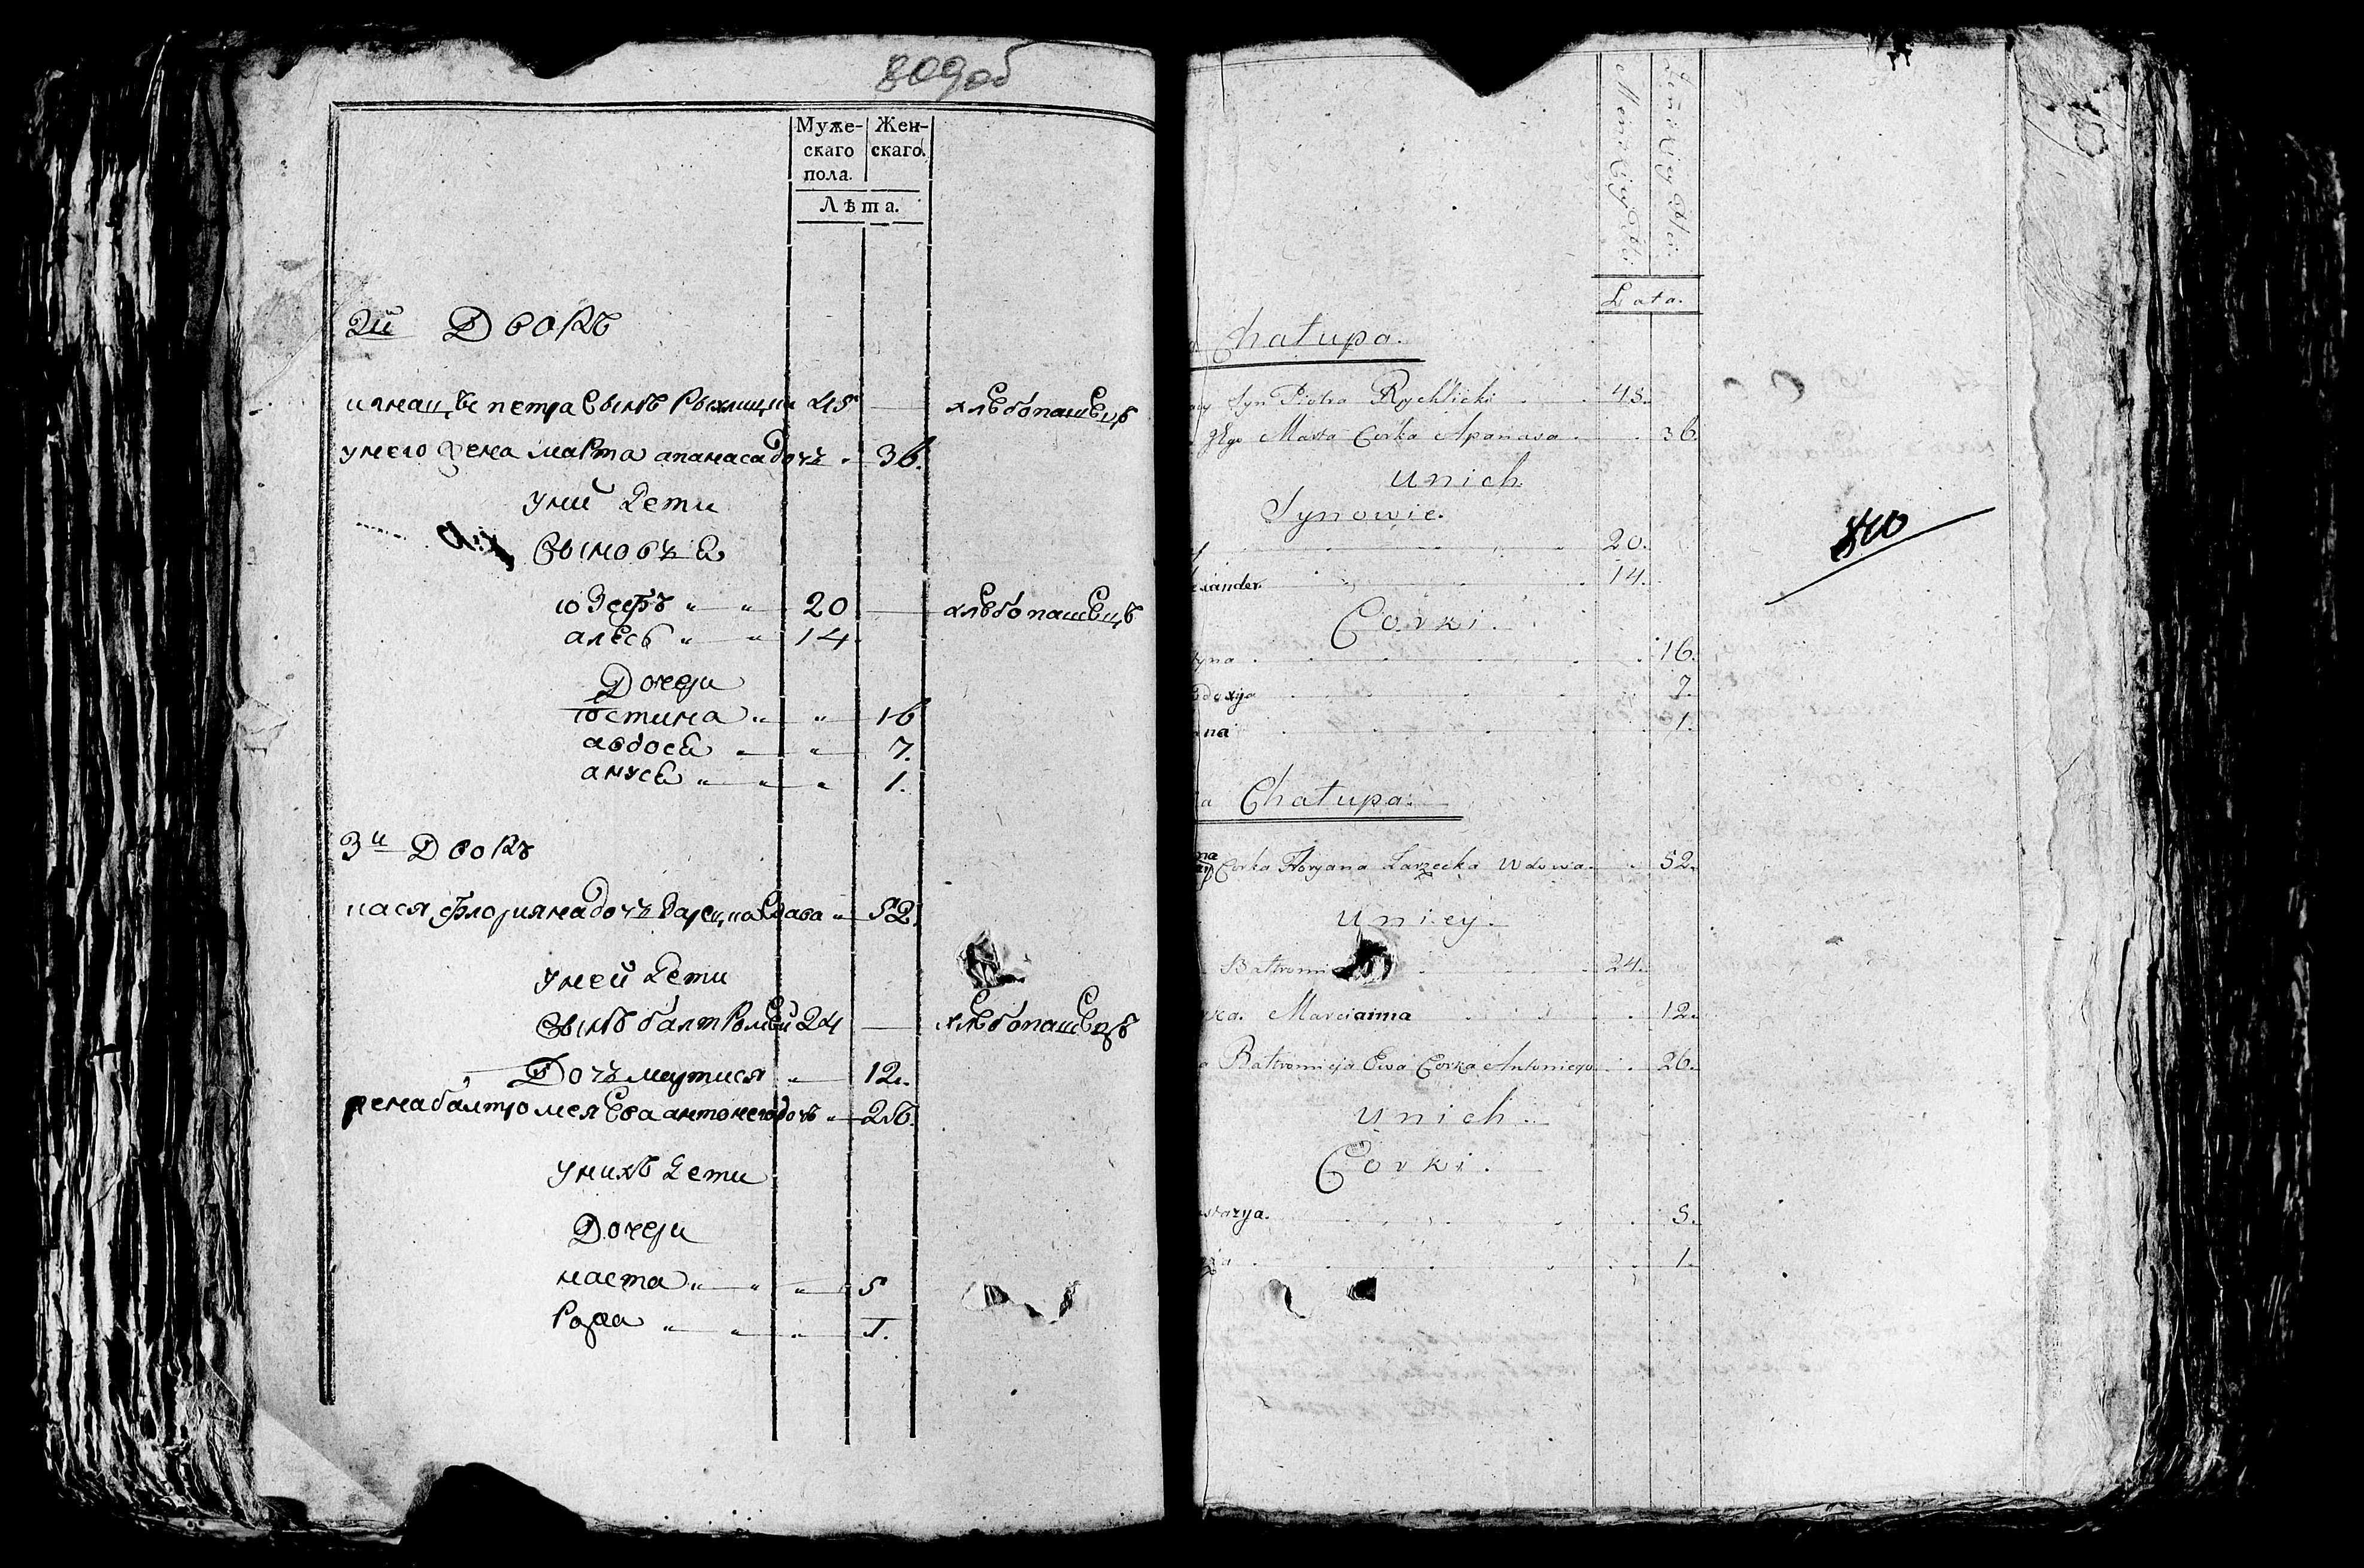 809 об
Муже- Жен-
скаго скаго.
пола.
Лѣта.
2й Дворъ
петра Сынъ 45 хлѣбопашецъ
унего жена марта апанаса дочъ 36.
уних дети
Сыновъя
юзефъ 20 хлѣбопашецъ
алесь 14
Дочери
юстина 16
авдося 7.
ануся 1.
3й Дворъ
нася флорияна дочъ вдава 52
уней дети
Сынъ балтромей 24 хлѣбопашецъ
Дочъ 12.
жена балтромея Ева антонего дочъ 26.
унихъ дети
Дочери
наста 5
Рожа 1.
Męzkiey Płci
Żeńskiey Płci
Lata.
Chałupa.
Syn Piotra Rychlicki 45.
Marta Corka Apanasa 36
unich
Synowie.
20.
xander 14.
Corki.
tyna 16.
doxya 7.
na 1.
Chałupa.
Corka Floryana Larzecka Wdowa 52.
uniey.
Bałtromi 24.
Marcianna 12.
Bałtromieja Ewa Corka Antoniego 26.
unich.
Corki.
starzya. 5.
1.
810